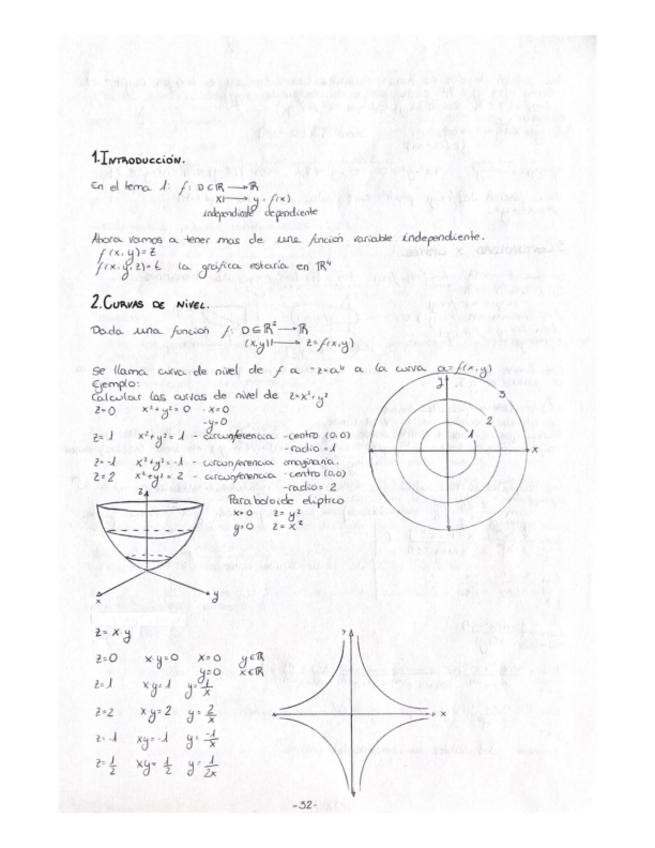 1. INTRODUCCIÓN.
En el tema 1: f: D⊂ℝ → ℝ
x ↦ y = f(x)
independiente dependiente
Ahora vamos a tener mas de una función variable independiente.
f(x,y)=z
f(x,y,z)=t la gráfica estaría en ℝ⁴
2. CURVAS DE NIVEL.
Dada una función f: D⊆ℝ² → ℝ
(x,y) ↦ z=f(x,y)
se llama curva de nivel de f a "z=a" a la curva a=f(x,y)
Ejemplo:
Calcular las curvas de nivel de z=x²+y²
z=0 x²+y²=0 -x=0
-y=0
z=1 x²+y²=1 - circunferencia -centro (0,0)
-radio=1
z=-1 x²+y²=-1 - circunferencia imaginaria.
z=2 x²+y²=2 - circunferencia -centro (0,0)
-radio=2
y
3
2
1
x
Paraboloide elíptico
x=0 z=y²
y=0 z=x²
z
x
y
z=x·y
z=0 xy=0 x=0 y∈ℝ
y=0 x∈ℝ
z=1 xy=1 y=1/x
z=2 xy=2 y=2/x
z=-1 xy=-1 y=-1/x
z=1/2 xy=1/2 y=1/2x
y
x
-52-